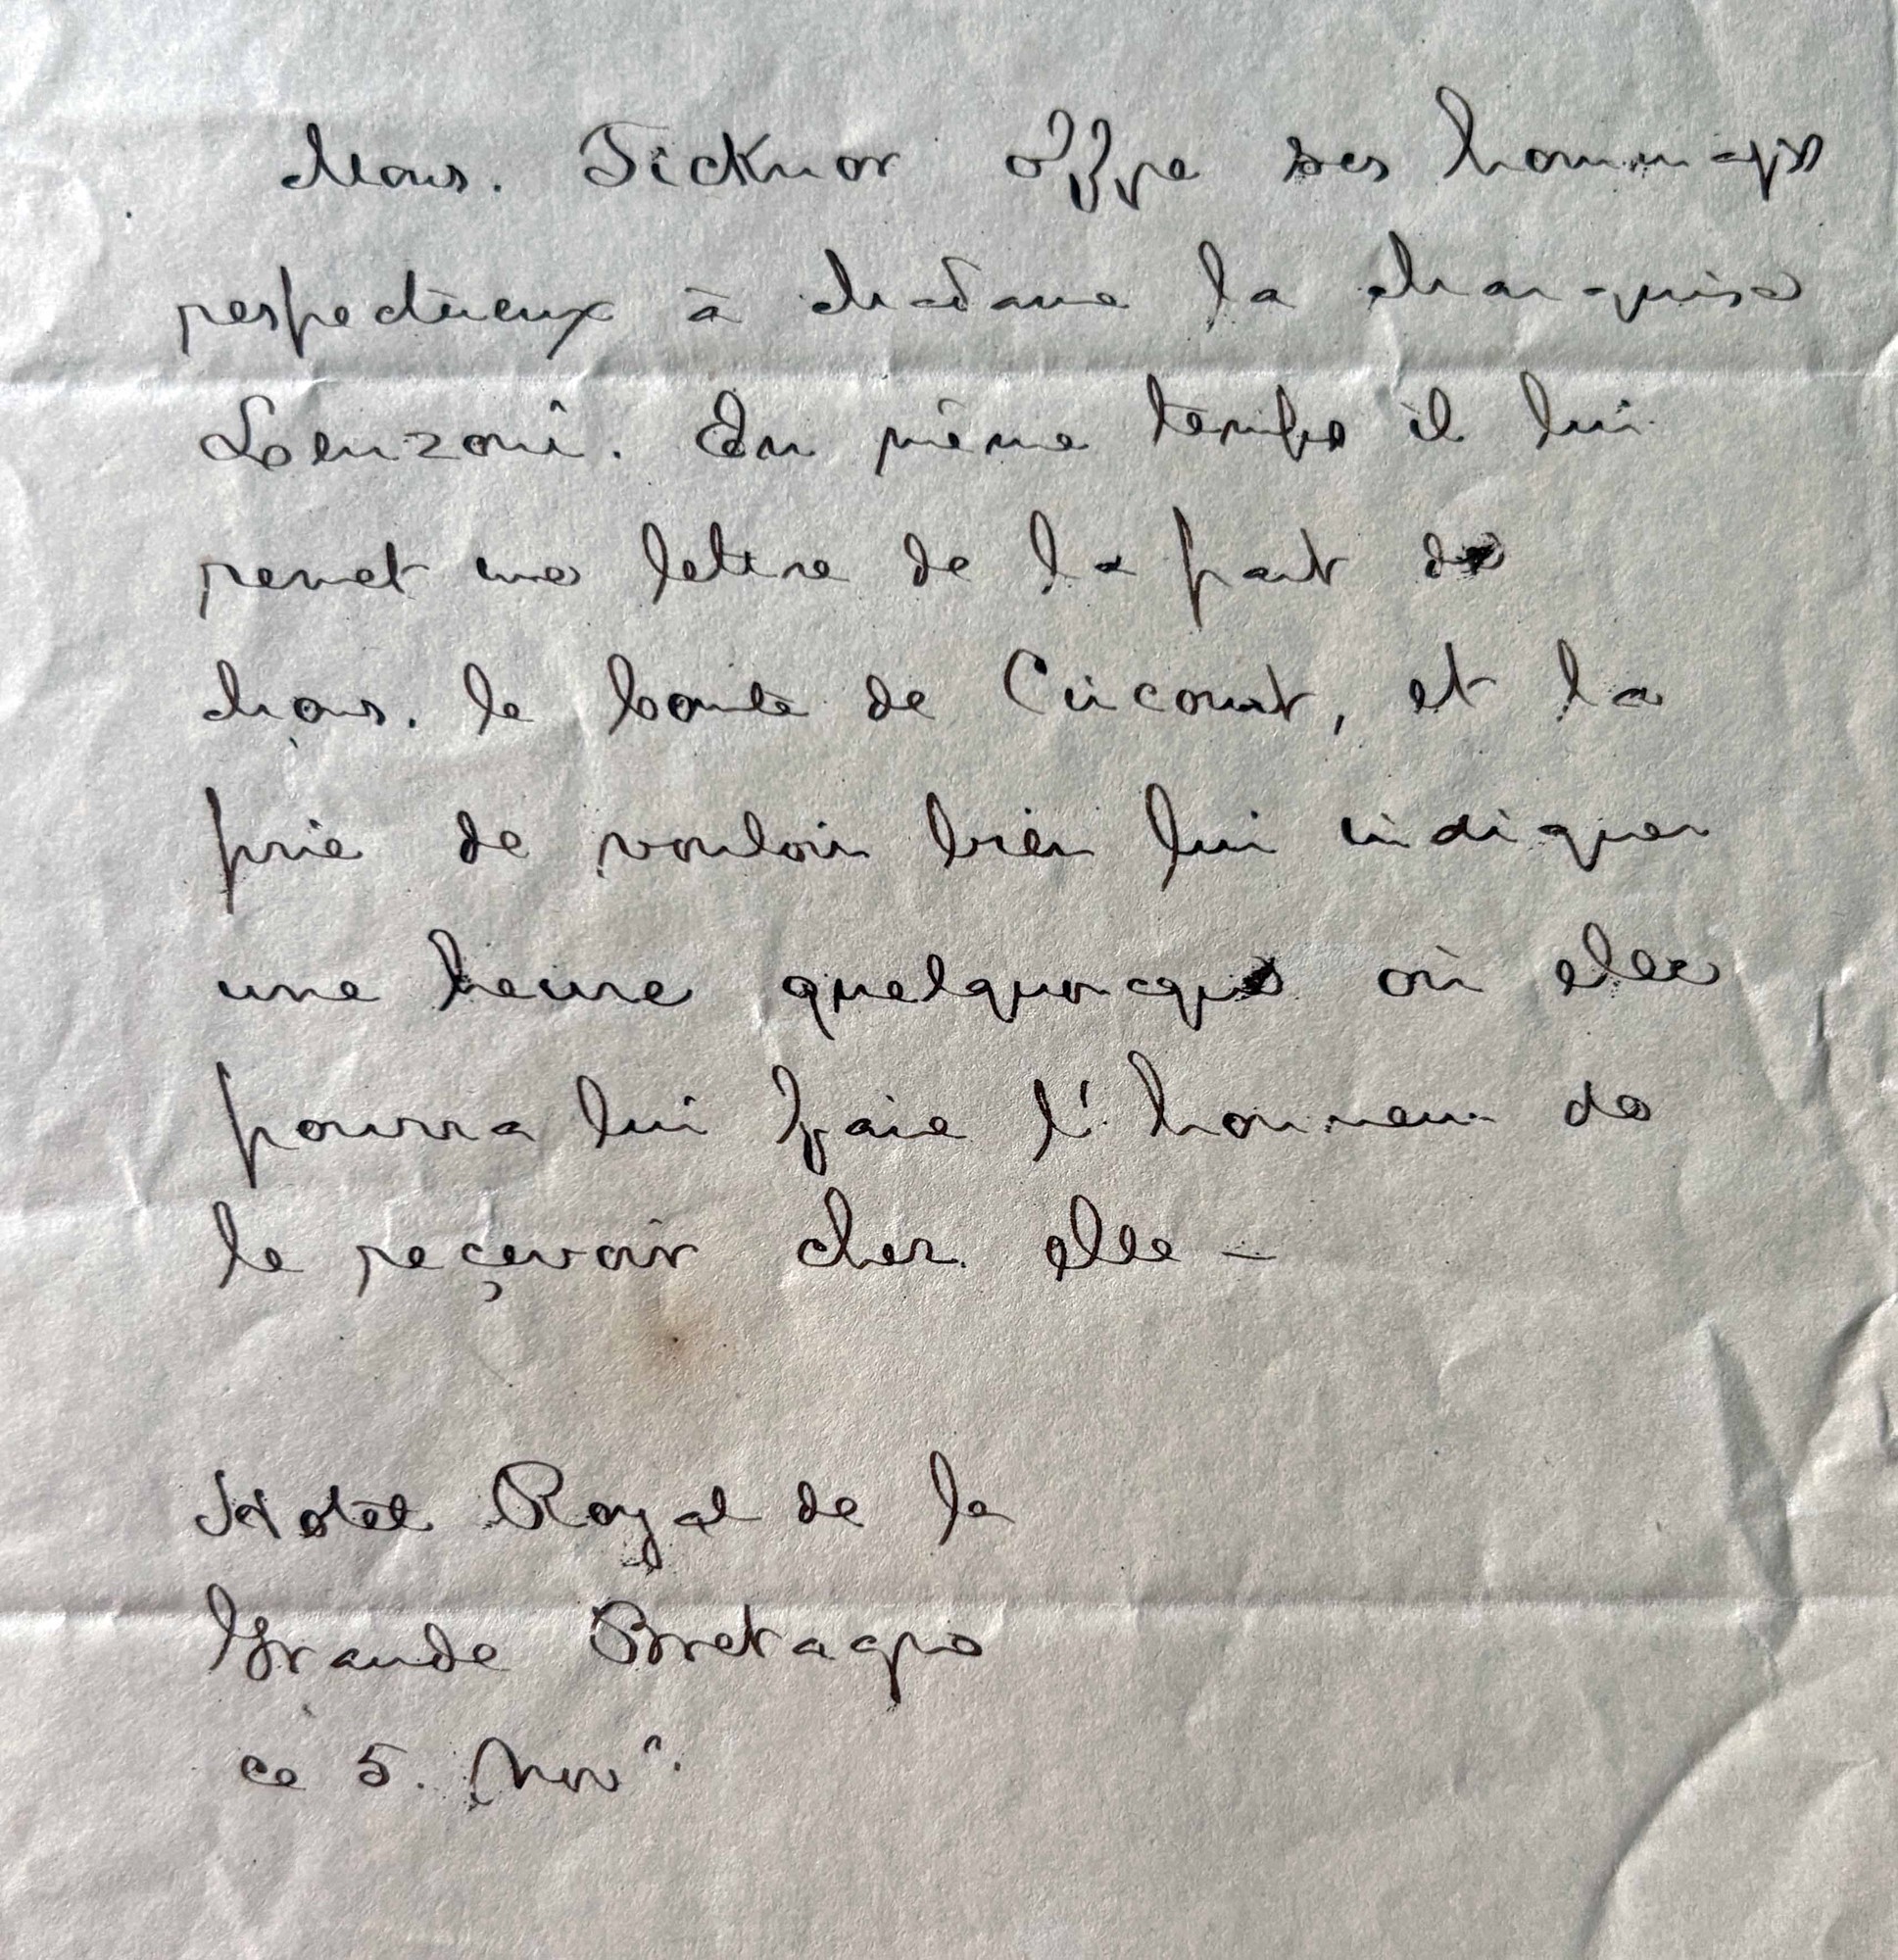 Mons. Ticknor offre ses hommages
respectueux à Madame la Marquise
Lenzoni. En même temps il lui
remet une lettre de la part de
Mons. le Comte de Circourt, et la
prie de vouloir bien lui indiquer
une heure quelquonque où elle
pourra lui faire l'honneur de
le reçevoir chez elle –
Hotel Royal de la
Grande Bretagne
ce 5. Nov<sup>e</sup>.